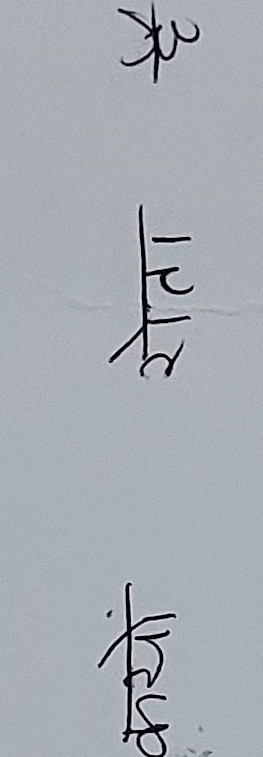 कयों रोता है